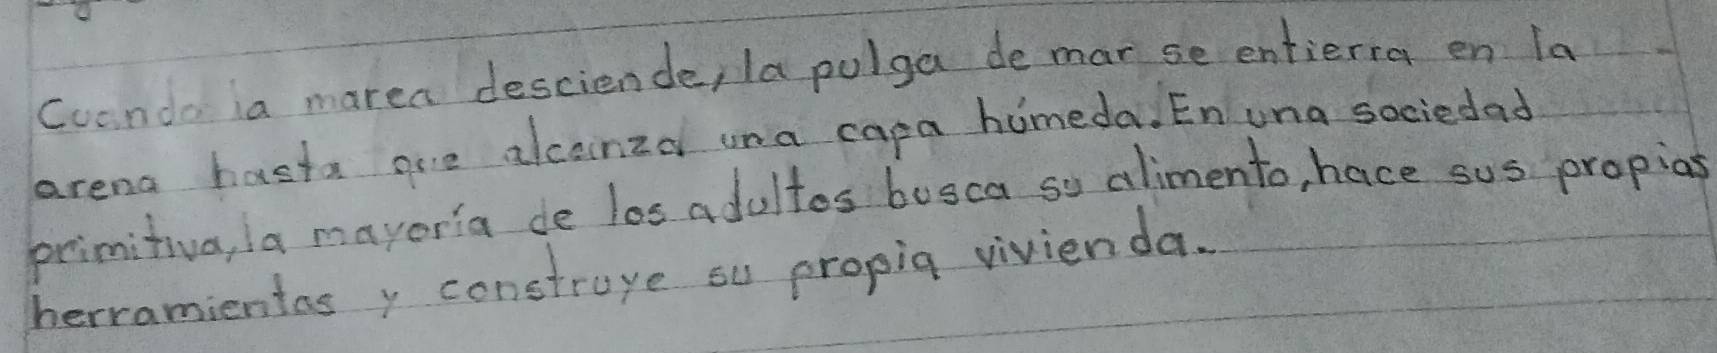 Cuando la marea desciende, la pulga de mar se entierra en la
arena hasta que alcanza una capa húmeda. En una sociedad
primitiva, la mayoría de los adultos busca su alimento, hace sus propias
herramientas y construye su propia vivienda.